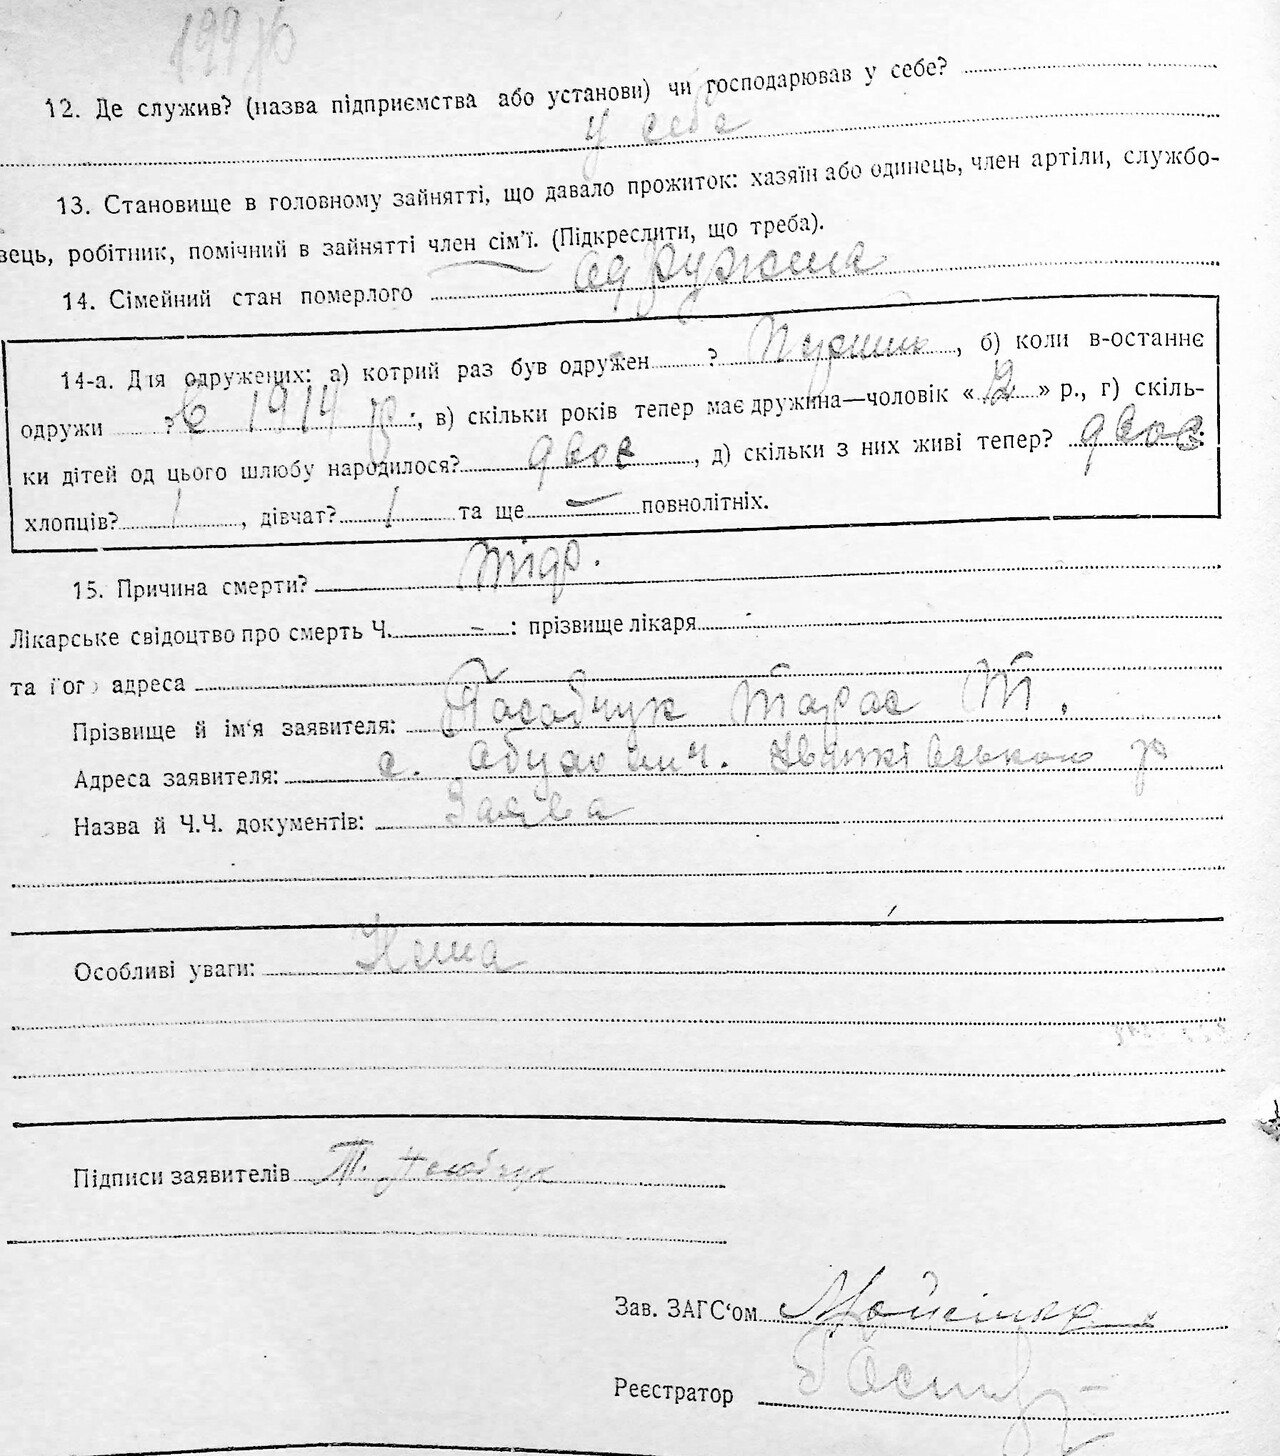 12. Де служив? (назва підприємства або установи) чи господарював у себе?
у себе
13. Становище в головному зайнятті, що давало прожиток: хазяїн або одинець, член артіли, службо-
вець, робітник, помічний в зайнятті член сім'ї. (Підкреслити, що треба).
14. Сімейний стан померлого одружена
14-а. Для одружених: а) котрий раз був одружен ? Перший, б) коли в-останнє
одружи ? В 1914 р:, в) скільки років тепер має дружина—чоловік « » р., г) скіль-
ки дітей од цього шлюбу народилося? двоє, д) скільки з них живі тепер? двоє:
хлопців? 1, дівчат? 1 та ще — повнолітніх.
15. Причина смерти? Тиф.
Лікарське свідоцтво про смерть Ч. - : прізвище лікаря -
та його адреса
Прізвище й ім'я заявителя: Тарас Т.
Адреса заявителя: с.
Назва й Ч.Ч. документів: Заява
Особливі уваги: Нема
Підписи заявителів Т.
Зав. ЗАГС'ом
Реєстратор